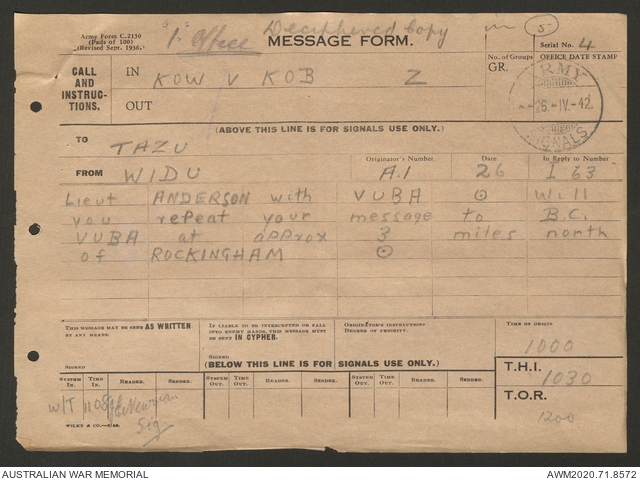 Army Form C.2150
(Pads of 100)
(Revised Sept. 1936.)
"I" Office Deciphered Copy
MESSAGE FORM.
5
Serial No. 4
CALL AND INSTRUC-TIONS.
IN KOW V KOB Z
OUT
No. of Groups GR.
OFFICE DATE STAMP
ARMY
26-IV-42
SIGNALS
(ABOVE THIS LINE IS FOR SIGNALS USE ONLY.)
TO TAZU
FROM WIDU
Originator's Number. A.1
Date. 26
In Reply to Number. I 63
Lieut ANDERSON with VUBA ⊙ Will
you repeat your message to B.C.
VUBA at approx 3 miles north
of ROCKINGHAM ⊙
THIS MESSAGE MAY BE SENT AS WRITTEN
BY ANY MEANS.
SIGNED
IF LIABLE TO BE INTERCEPTED OR FALL
INTO ENEMY HANDS, THIS MESSAGE MUST
BE SENT IN CYPHER.
SIGNED
ORIGINATOR'S INSTRUCTIONS
DEGREE OF PRIORITY.
TIME OF ORIGIN
1000
(BELOW THIS LINE IS FOR SIGNALS USE ONLY.)
T.H.I.
1030
T.O.R.
1200
SYSTEM IN. TIME IN. READER. SENDER. SYSTEM OUT. TIME OUT. READER. SENDER. SYSTEM OUT. TIME OUT. READER. SENDER.
W/T 1105 Newman
Sig
WILKE & CO.
AUSTRALIAN WAR MEMORIAL
AWM2020.71.8572